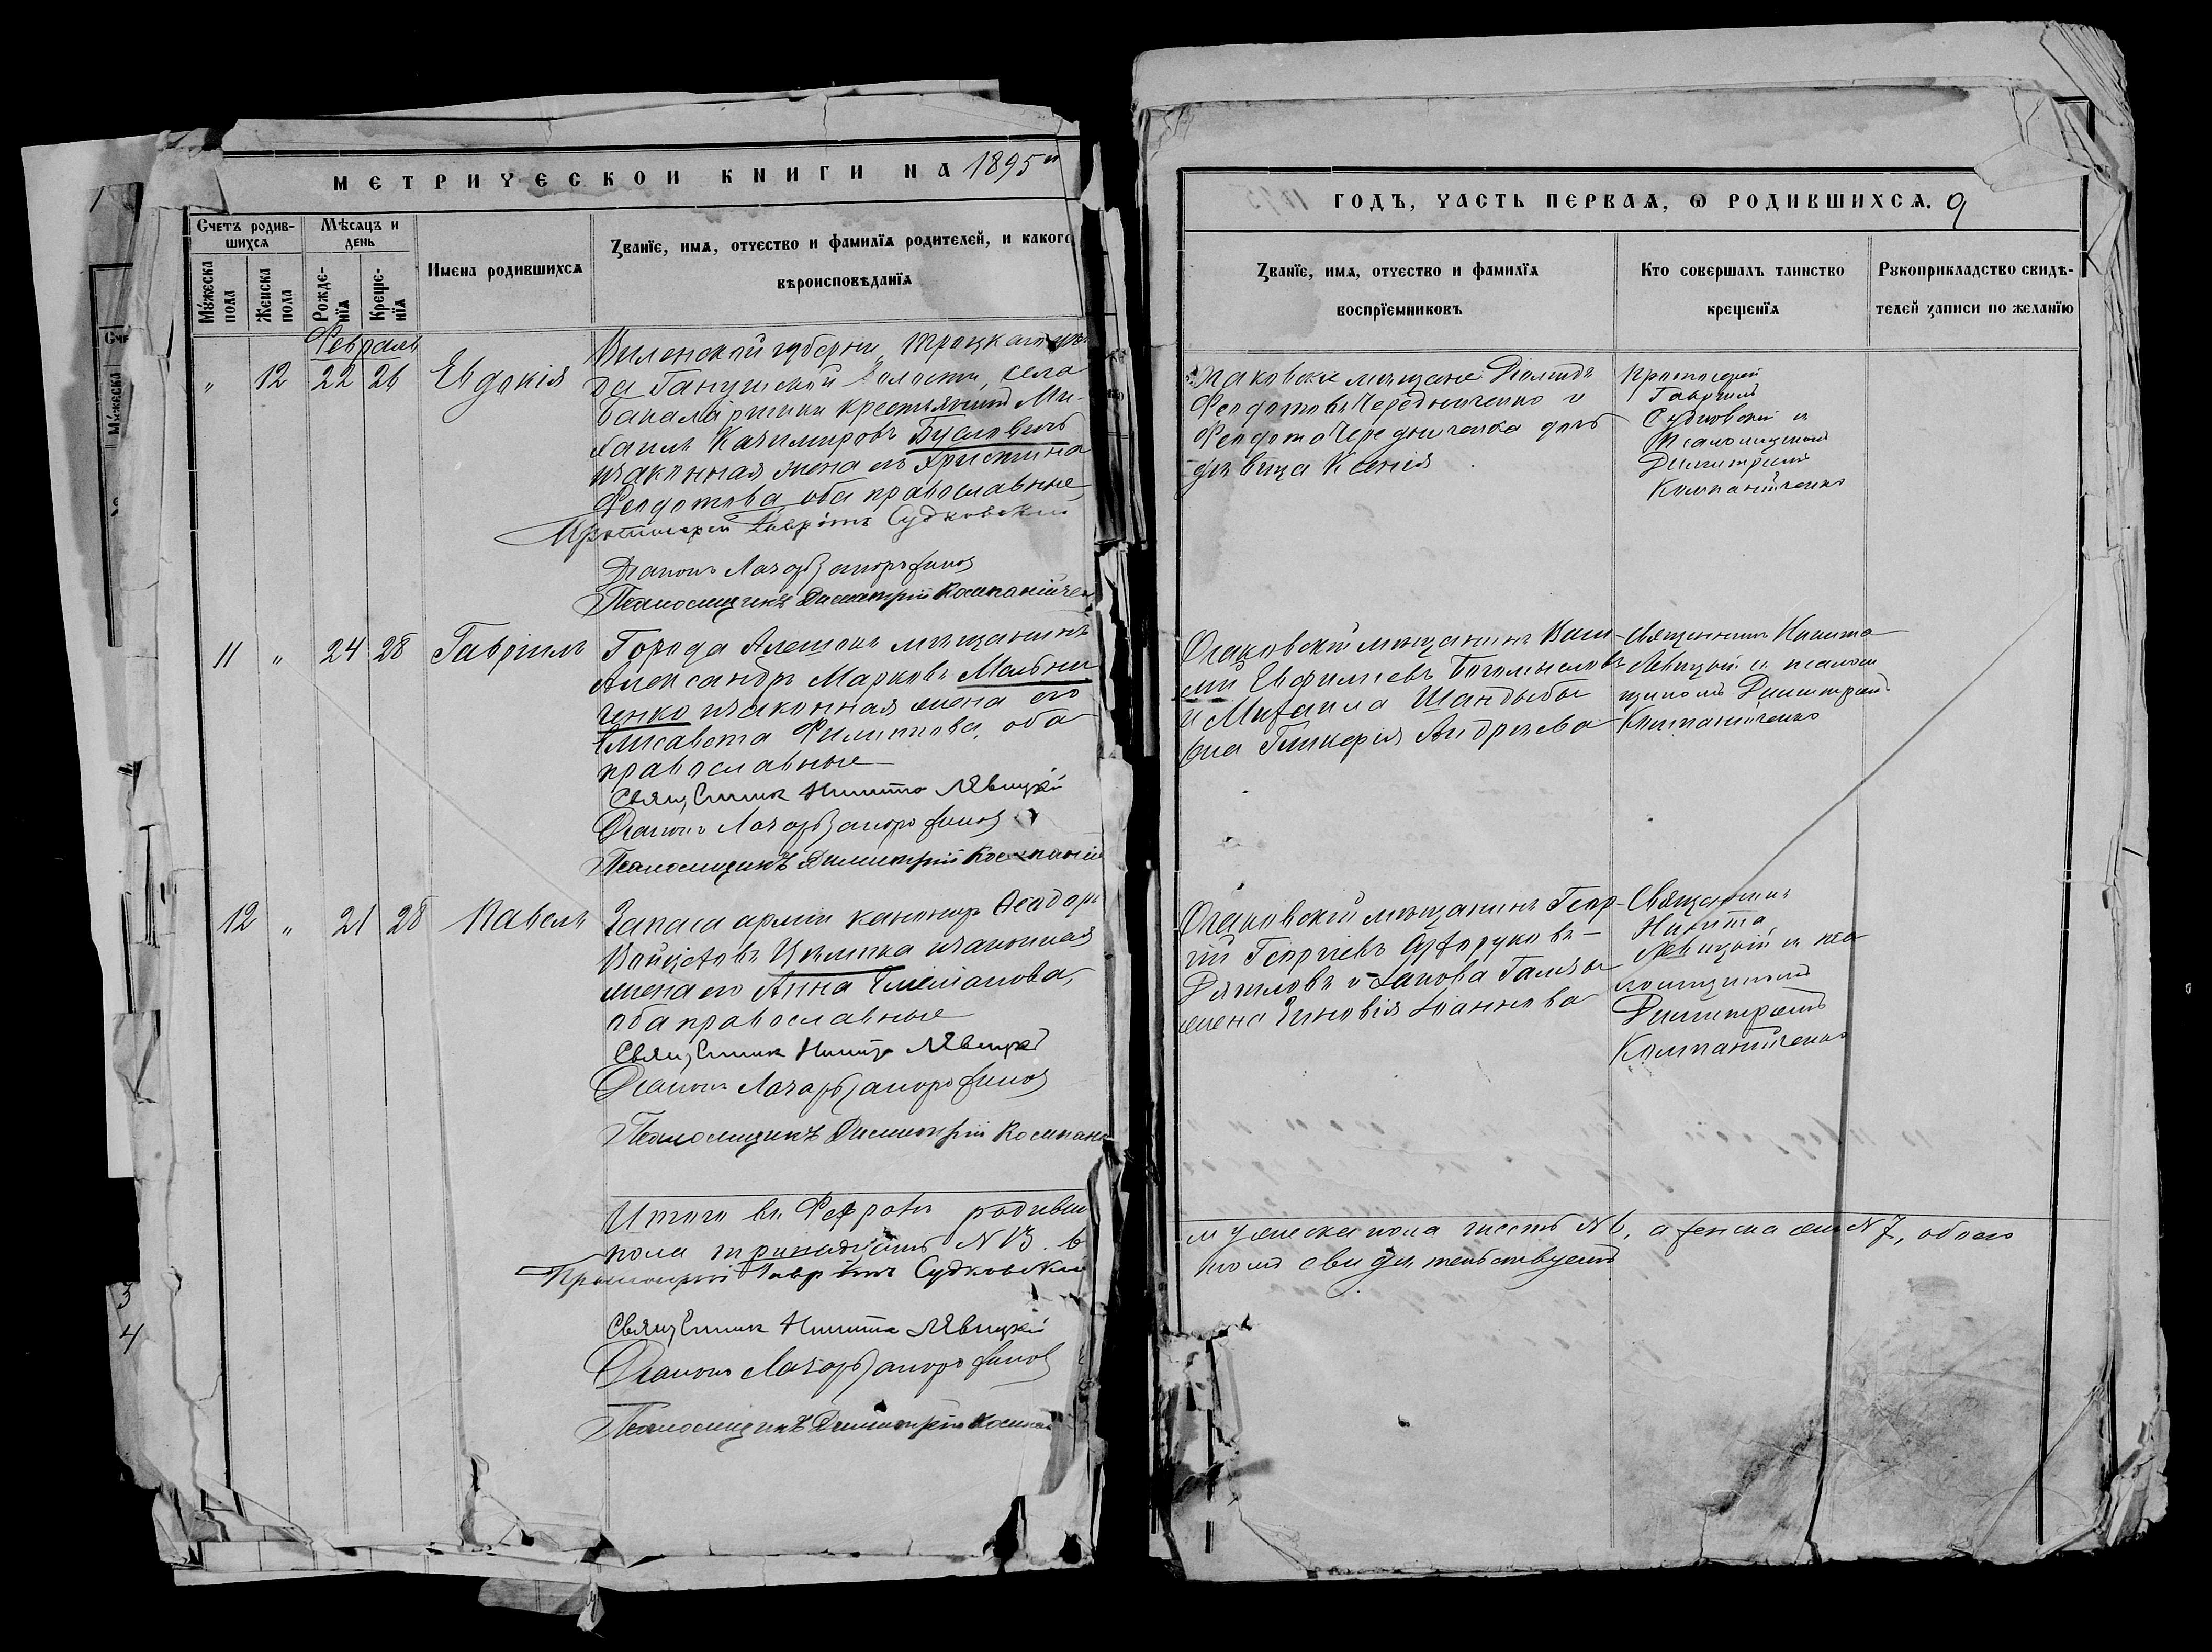 МЕТРИЧЕСКОЙ КНИГИ НА 1895й
Счетъ родив-
шихся
Мѣсяцъ и
день
Имена родившихся
Званїе, имя, отчество и фамилїя родителей, и какого
вѣроисповѣданїя
Мꙋжеска
пола
Женска
пола
Рожде-
нїя
Креще-
нїя
Февраль
" 12 22 26 Евдокія
Виленской губерніи, Трокскаго
да Ганушской волости, села
крестьянинъ Ми-
хаилъ Казимировъ Бусловичъ
и законная жена его Христина
Феодотова, оба православные
Протоіерей Гавріилъ Судковскій
Діаконъ Лазарь
Псаломщикъ Димитрій Компанійчен
11 " 24 28 Гавріилъ
Города Алешекъ мѣщанинъ
Александръ Марковъ Мельни-
ченко и законная жена его
Елисавета Филиппова, оба
православные
Священникъ Никита Лѣвицкій
Діаконъ Лазарь
Псаломщикъ Димитрій Компаній
12 " 21 28 Павелъ
Запаса арміи канониръ Ѳеодоръ
и законная
жена его Анна Емеліанова,
оба православные
Священникъ Никита Лѣвицкій
Діаконъ Лазарь
Псаломщикъ Димитрій Компаній
Итого въ Февралѣ родивш
пола тринадцать N 13. в
Протоіерей Гавріилъ Судковскій
Священникъ Никита Лѣвицкій
Діаконъ Лазарь
Псаломщикъ Димитрій Компан
3
4
ГОДЪ, ЧАСТЬ ПЕРВАЯ, Ѡ РОДИВШИХСЯ. 9
Званїе, имя, отчество и фамилїя
воспрїемниковъ
Кто совершалъ таинство
крещенїя
Рꙋкоприкладство свидѣ-
телей записи по желанїю
Очаковскіе мѣщане
Феодотовъ Чередниченко и
Феодота Чередниченка дочь
дѣвица Ксенія
Протоіерей
Гавріилъ
Судковскій и
псаломщикъ
Димитрій
Компанійченко
Очаковскій мѣщанинъ Васи-
лій Евфиміевъ Богомысловъ
и Михаила Шандыбы
жена Гликерія Андреева
Священникъ Никита
Лѣвицкій и псалом
щикомъ Димитріемъ
Компанійченко
Очаковскій мѣщанинъ Геор-
гій Георгіевъ
Дятловъ и Іакова
жена Зиновія Іоаннова
Священникъ
Никита
Лѣвицкій и пса
ломщикомъ
Димитріемъ
Компанійченко
мужеска пола шесть N 6, а женска семь N 7, обоего
свидѣтельствуемъ